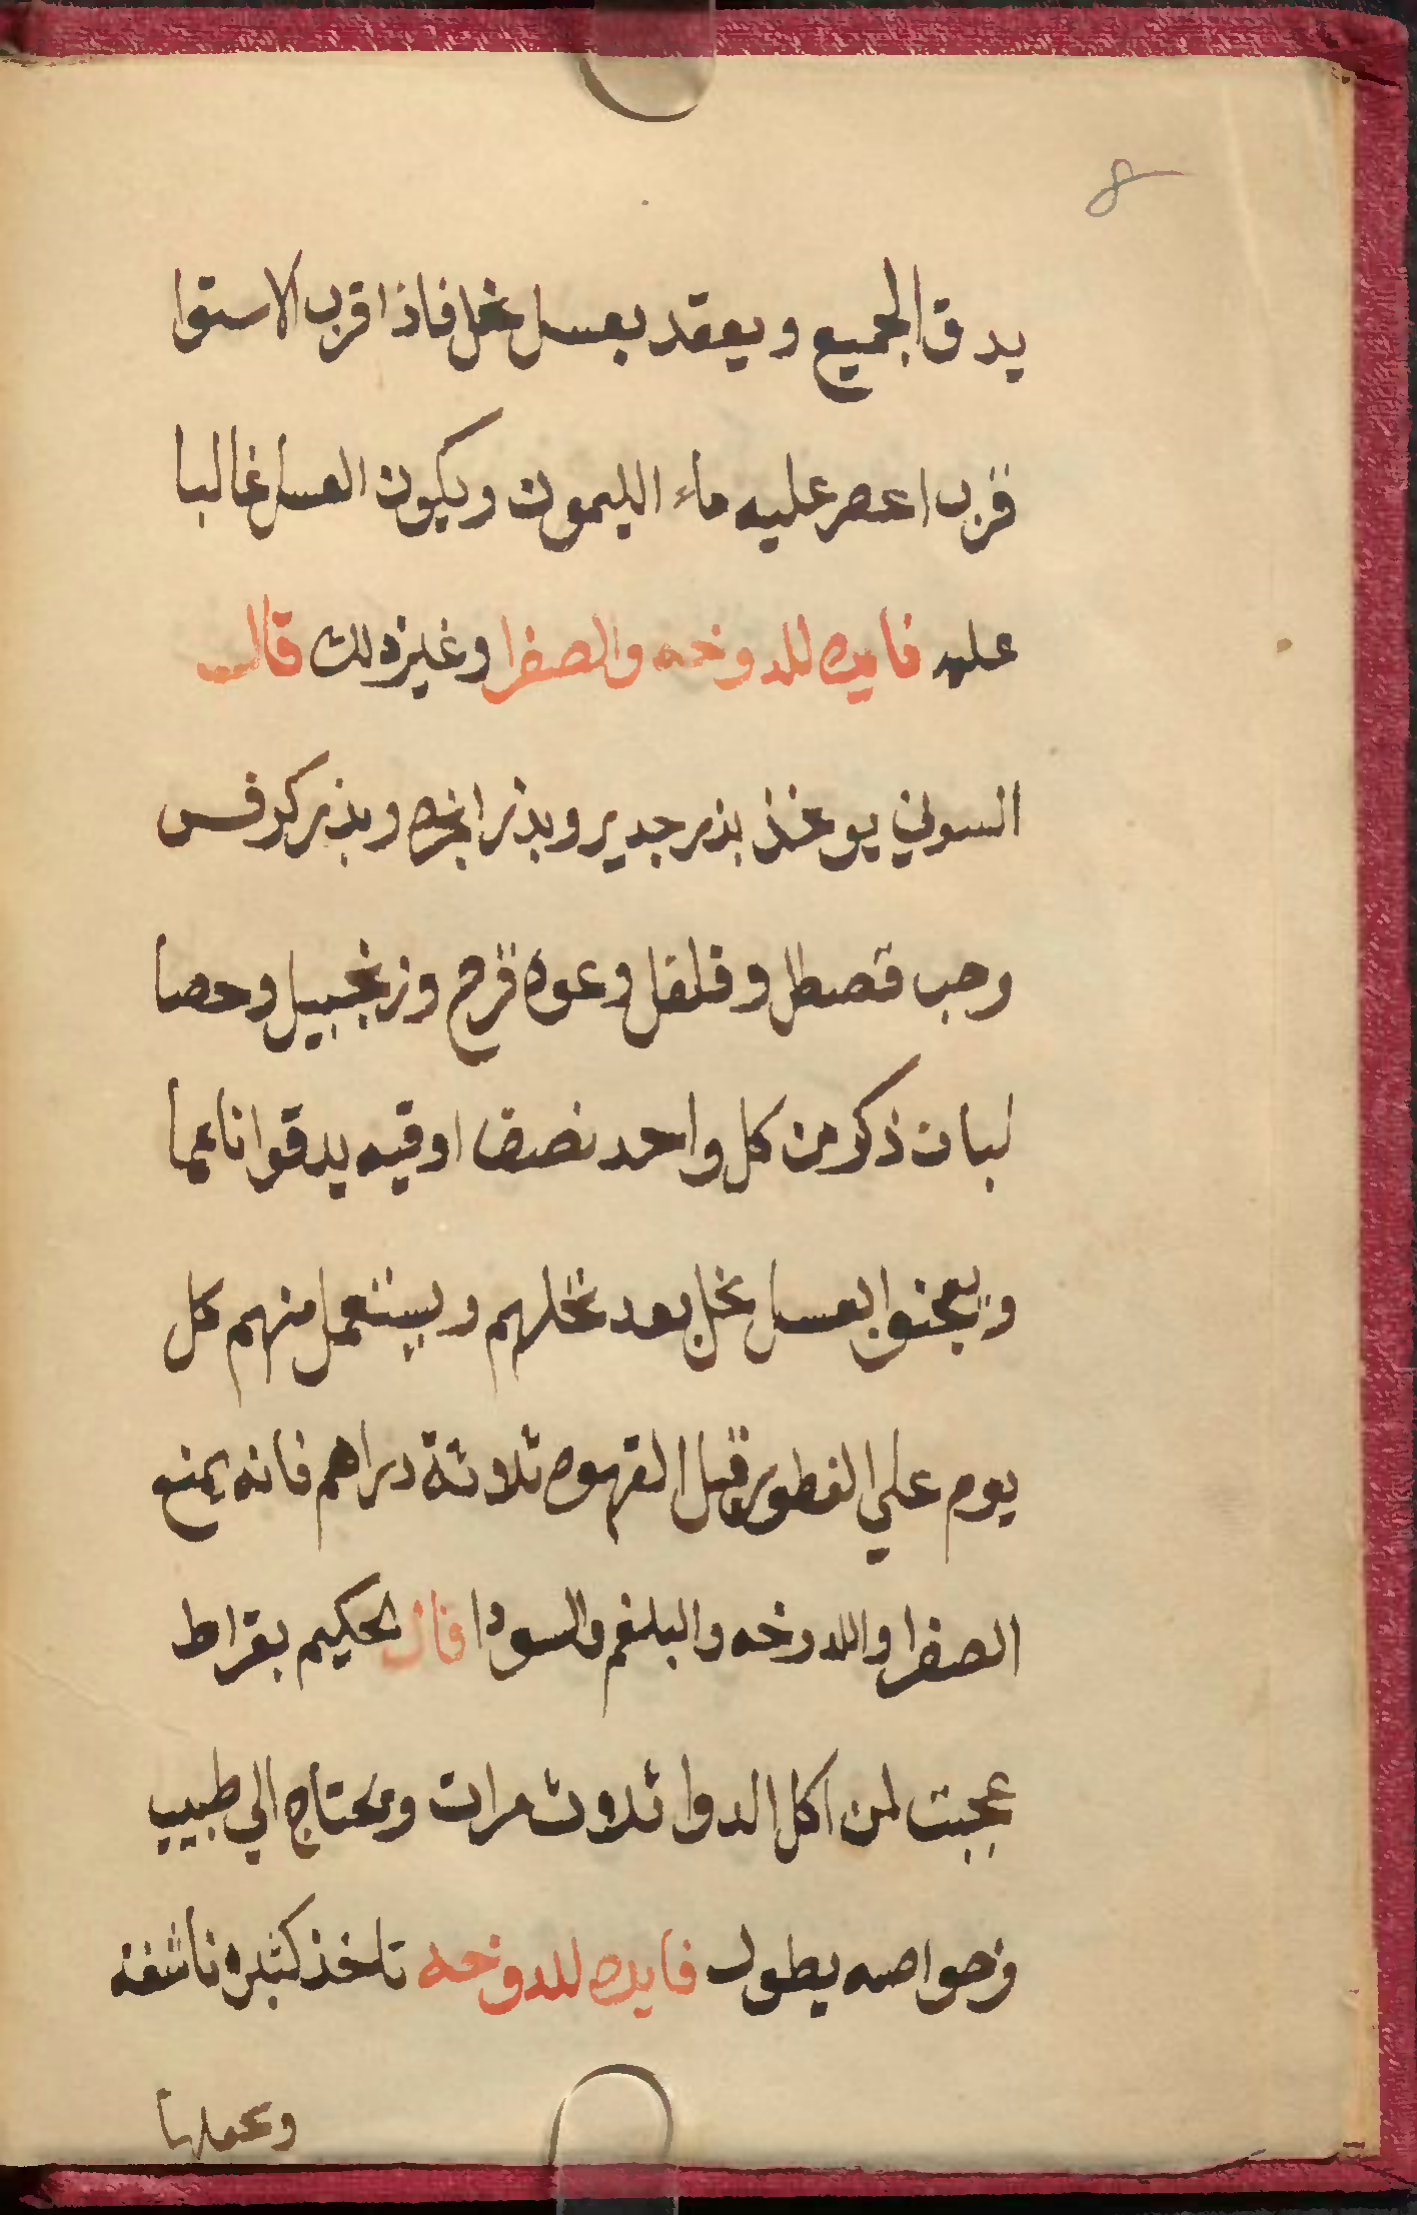 8
يدق الجميع ويعقد بعسل نحل فاذا اقرب الاستوا
قرب اعصر عليه ماء الليمون ويكون العسل غالبا
عليه فايده للدوخه والصفرا وغيرذلك قال
السوني يوخذ بذر جدير وبذر انجره وبذر كرفس
وحب قصطل وفلفل وعود قرح وزنجبيل وحصا
لبان ذكر من كل واحد نصف اوقيه يدقوا ناعما
ويعجنوا بعسل نحل بعد نخلهم ويستعمل منهم كل
يوم علي الفطور قبل القهوه ثلاثة دراهم فانه يمنع
الصفرا والدوخه والبلغم والسودا قال الحكيم بقراط
عجبت لمن اكل الدوا ثلاث مرات ويحتاج الي طبيب
وخواصه يطول فايده للدوخه تاخذ كثيره ناشفه
وتحملها